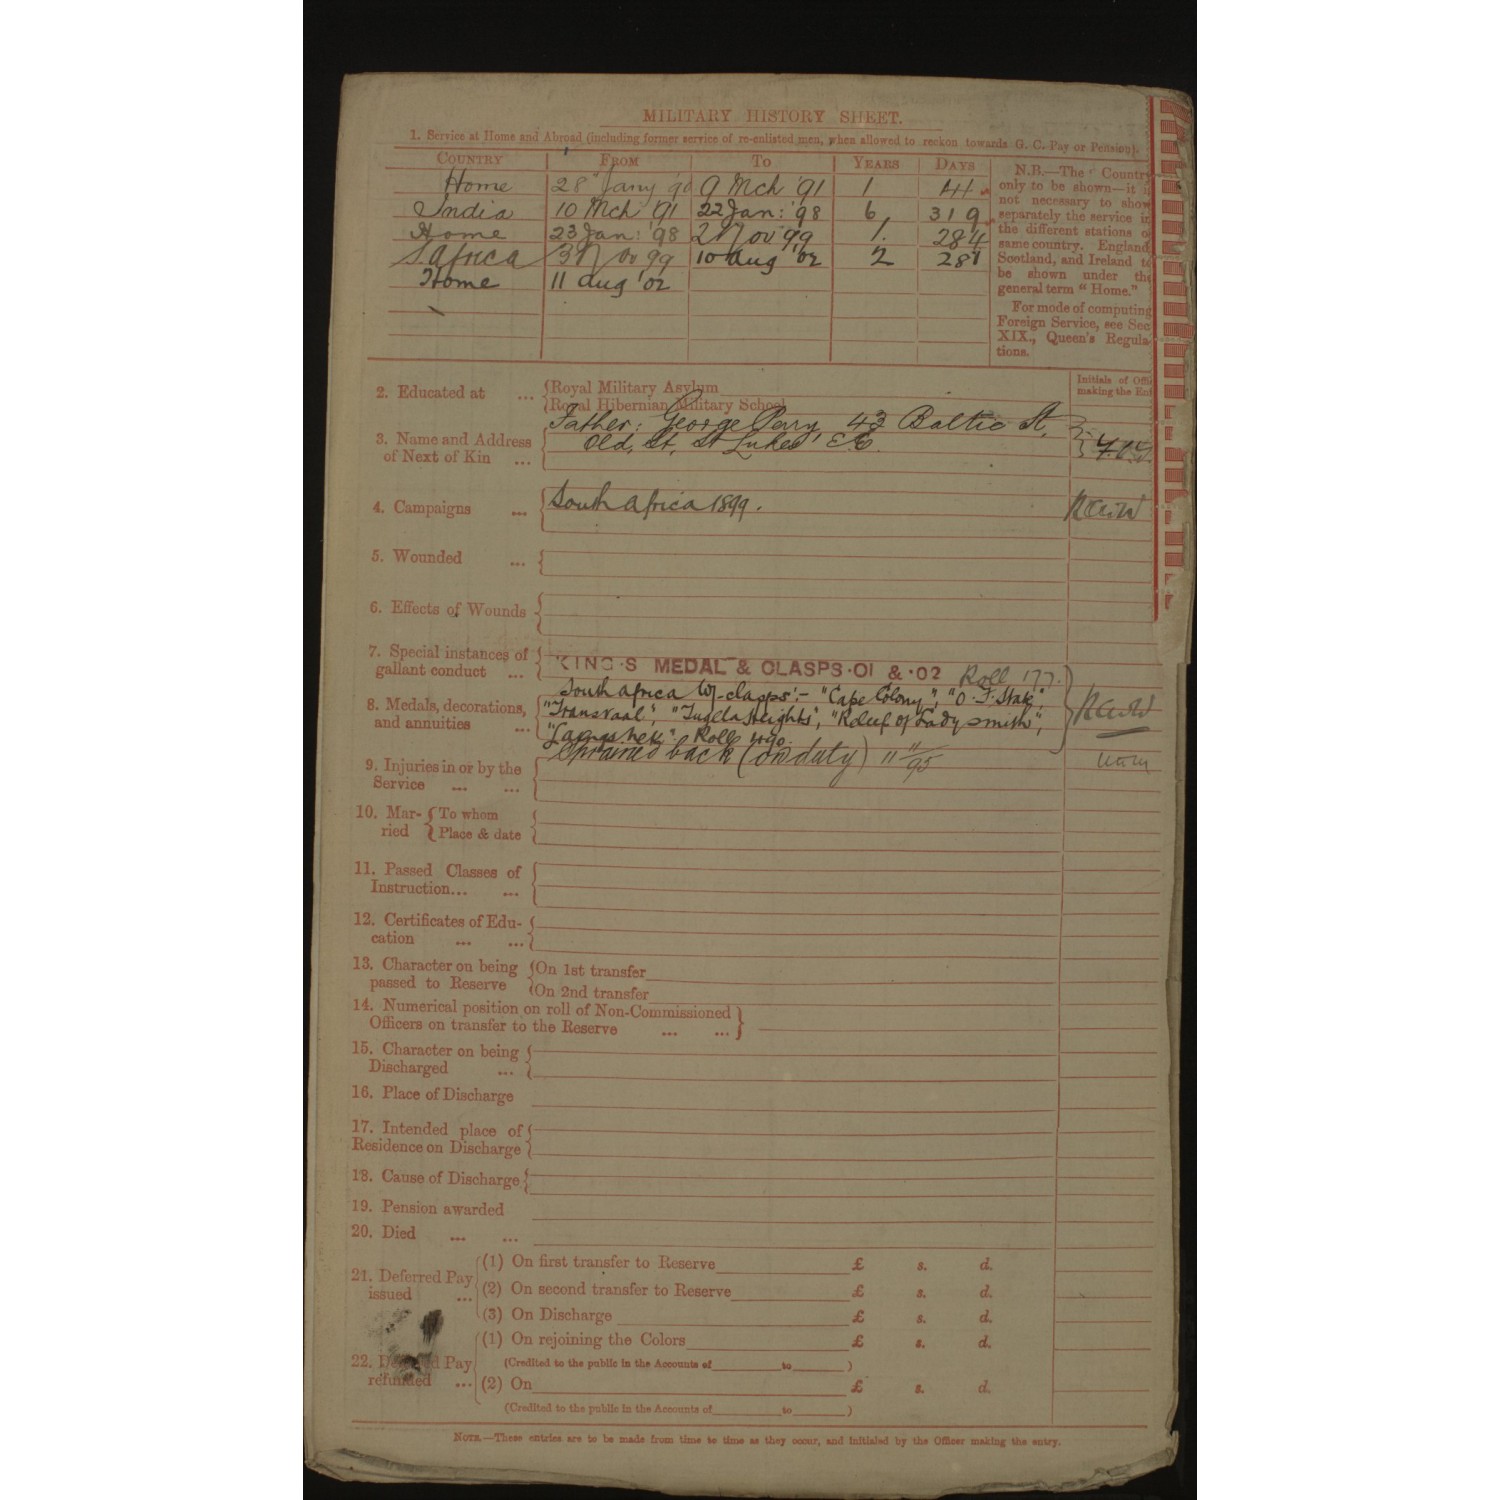 MILITARY HISTORY SHEET.
1. Service at Home and Abroad (including former service of re-enlisted men, when allowed to reckon towards G. C. Pay or Pension).
COUNTRY FROM TO YEARS DAYS
Home 28 Jany '90 9 Mch '91 1 41
India 10 Mch '91 22 Jan: '98 6 319
Home 23 Jan: '98 2 Nov 99 1 284
S. Africa 3 Nov 99 10 Aug '02 2 281
Home 11 Aug '02
N.B.—The Country
only to be shown—it is
not necessary to show
separately the service in
the different stations o
same country. England,
Scotland, and Ireland to
be shown under the
general term "Home."
For mode of computing
Foreign Service, see Sec
XIX., Queen's Regula-
tions.
Initials of Offi
making the Ent
2. Educated at ... Royal Military Asylum
Royal Hibernian Military School
3. Name and Address
of Next of Kin ...
Father: George Pery 43 Baltic St,
Old St, St Lukes' EC.
4. Campaigns ... South Africa 1899.
5. Wounded ...
6. Effects of Wounds
7. Special instances of
gallant conduct ...
KING'S MEDAL & CLASPS ·01 & ·02 Roll 177.
8. Medals, decorations,
and annuities ...
South Africa W/- clasps:- "Cape Colony", "O. F. State",
"Transvaal", "Tugela Heights", "Relief of Ladysmith",
"Laingsnek". Roll 490.
9. Injuries in or by the
Service ... ...
Sprained back (on duty) 11/11/95
10. Married To whom
Place & date
11. Passed Classes of
Instruction... ...
12. Certificates of Edu-
cation ... ...
13. Character on being
passed to Reserve
On 1st transfer
On 2nd transfer
14. Numerical position on roll of Non-Commissioned
Officers on transfer to the Reserve ... ...
15. Character on being
Discharged ...
16. Place of Discharge
17. Intended place of
Residence on Discharge
18. Cause of Discharge
19. Pension awarded
20. Died ... ...
21. Deferred Pay
issued ...
(1) On first transfer to Reserve £ s. d.
(2) On second transfer to Reserve £ s. d.
(3) On Discharge £ s. d.
22. Deferred Pay
refunded ...
(1) On rejoining the Colors £ s. d.
(Credited to the public in the Accounts of to )
(2) On £ s. d.
(Credited to the public in the Accounts of to )
NOTE.—These entries are to be made from time to time as they occur, and initialed by the Officer making the entry.